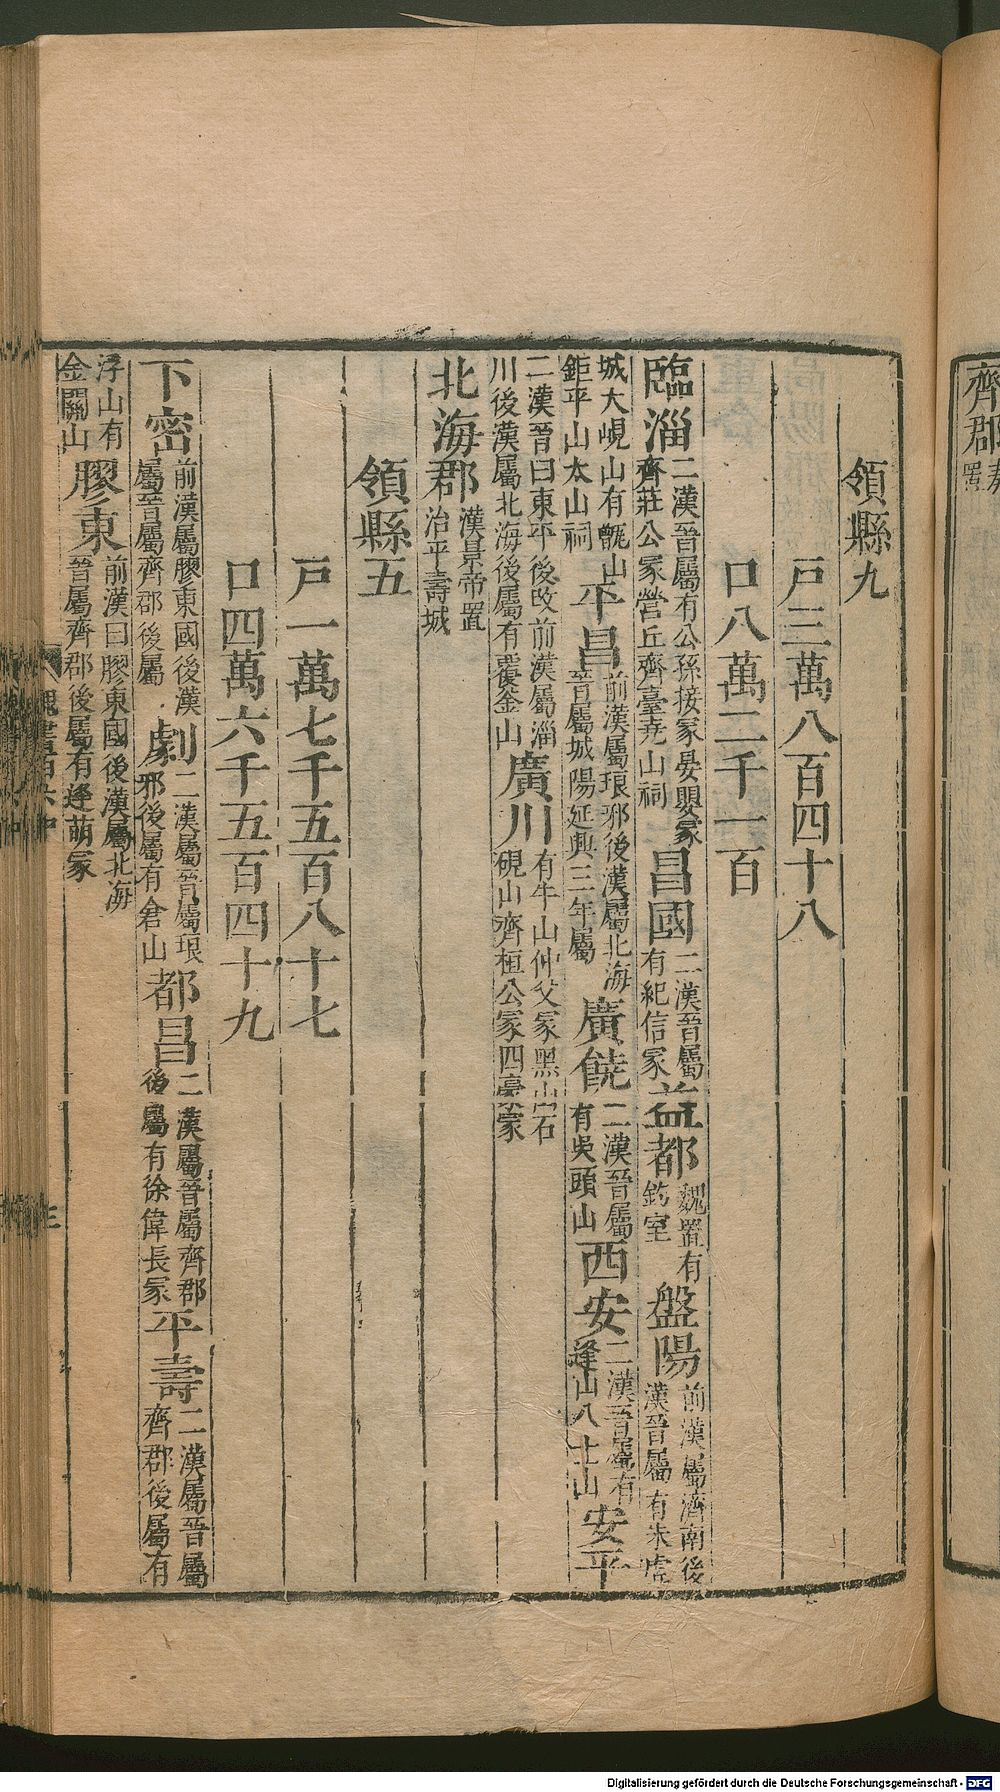 齊郡
置
領縣九
戸三萬八百四十八
口八萬二千一百
臨淄二漢晉屬有公孫接冢晏嬰冢齊莊公冢營丘齊臺堯山祠昌國二漢晉屬有紀信冢益都魏置有釣室盤陽前漢屬濟南後漢晉屬有朱虛
城大峴山有㼽山鉅平山太山祠平昌前漢屬琅邪後漢屬北海晉屬城陽延興三年屬廣饒二漢晉屬有吳頭山西安二漢晉屬有逢山八士山安平
二漢晉曰東平後改前漢屬淄川後漢屬北海後屬有覆釜山廣川有牛山仲父冢黑山石硯山齊桓公冢四豪冢
北海郡漢景帝置治平壽城
領縣五
戸一萬七千五百八十七
口四萬六千五百四十九
下密前漢屬膠東國後漢屬晉屬齊郡後屬劇二漢屬晉屬琅邪後屬有倉山都昌二漢屬晉屬齊郡後屬有徐偉長冢平壽二漢屬晉屬齊郡後屬有
浮山有金關山膠東前漢曰膠東國後漢屬北海晉屬齊郡後屬有逢萌冢
魏書百六中
三
Digitalisierung gefördert durch die Deutsche Forschungsgemeinschaft - DFG